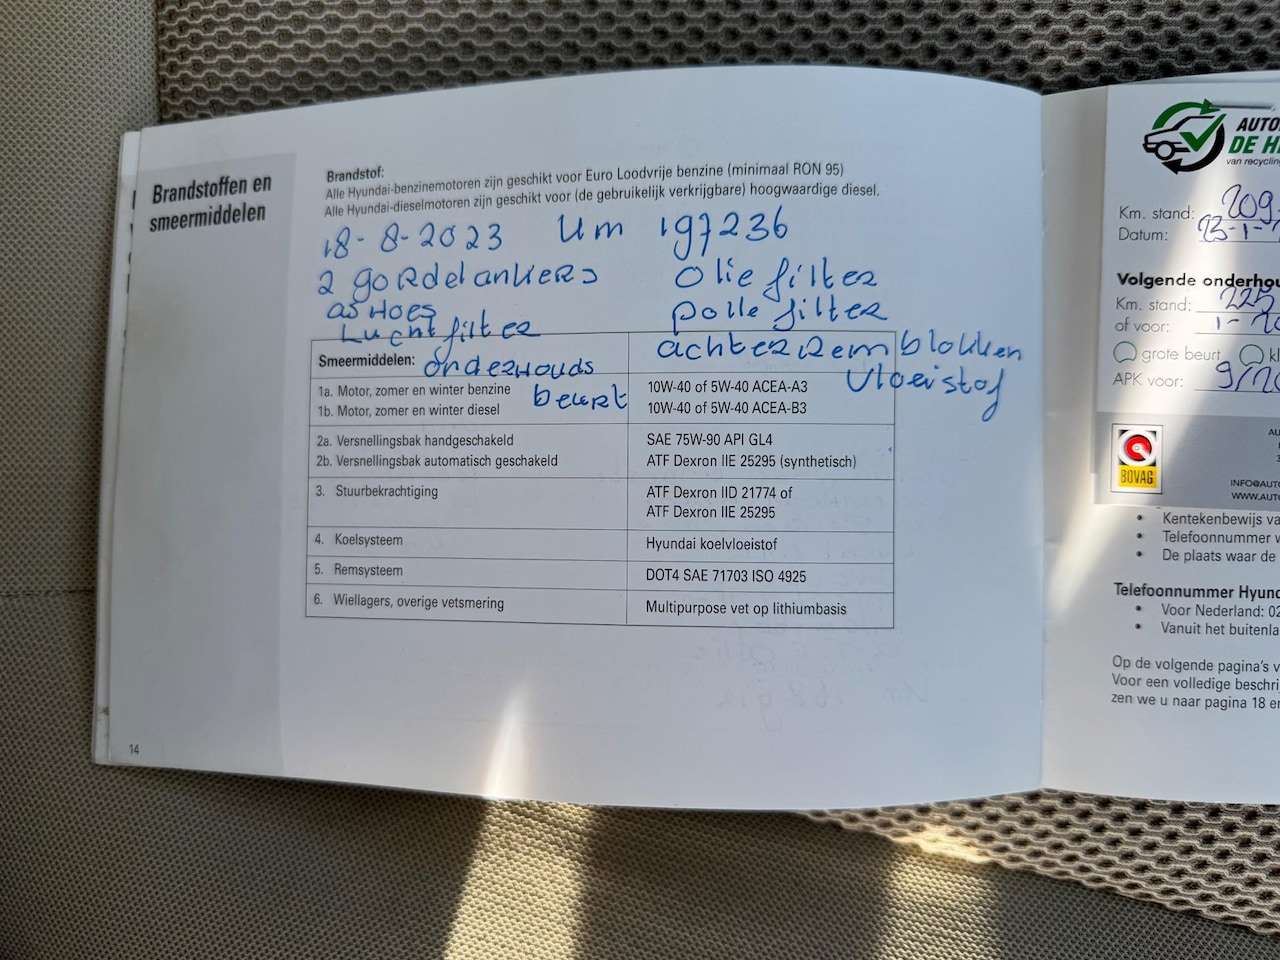 Brandstoffen en
smeermiddelen
Brandstof:
Alle Hyundai-benzinemotoren zijn geschikt voor Euro Loodvrije benzine (minimaal RON 95)
Alle Hyundai-dieselmotoren zijn geschikt voor (de gebruikelijk verkrijgbare) hoogwaardige diesel.
18-8-2023 Km 197236
2 gordelankers oliefilter
ashoes pollefilter
Luchtfilter achterremblokken
Smeermiddelen: onderhouds vloeistof
beurt
1a. Motor, zomer en winter benzine 10W-40 of 5W-40 ACEA-A3
1b. Motor, zomer en winter diesel 10W-40 of 5W-40 ACEA-B3
2a. Versnellingsbak handgeschakeld SAE 75W-90 API GL4
2b. Versnellingsbak automatisch geschakeld ATF Dexron IIE 25295 (synthetisch)
3. Stuurbekrachtiging ATF Dexron IID 21774 of
ATF Dexron IIE 25295
4. Koelsysteem Hyundai koelvloeistof
5. Remsysteem DOT4 SAE 71703 ISO 4925
6. Wiellagers, overige vetsmering Multipurpose vet op lithiumbasis
14
AUTO
DE H
van recycling
Km. stand: 209
Datum: 23-1-
Volgende onderhou
Km. stand: 225
of voor: 1-20
grote beurt kl
APK voor: 9/20
BOVAG
INFO@AUTO
WWW.AUTO
• Kentekenbewijs va
• Telefoonnummer
• De plaats waar de
Telefoonnummer Hyund
• Voor Nederland: 02
• Vanuit het buitenla
Op de volgende pagina's v
Voor een volledige beschri
zen we u naar pagina 18 en